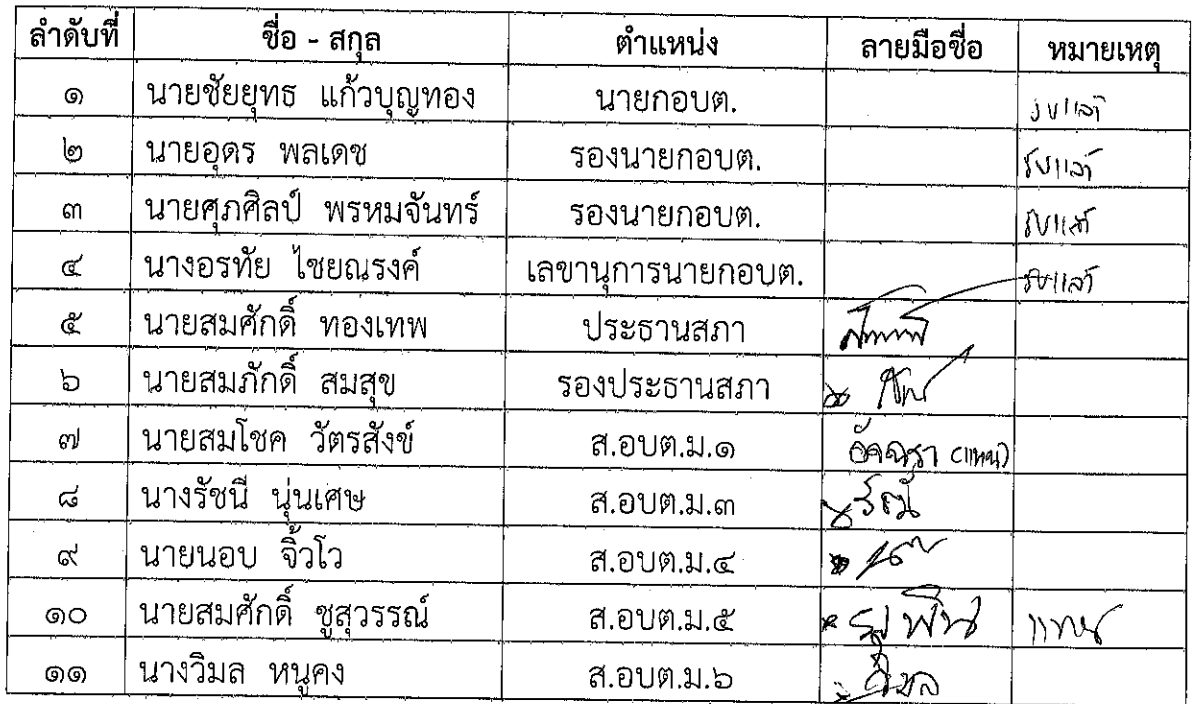 ลำดับที่ ชื่อ - สกุล ตำแหน่ง ลายมือชื่อ หมายเหตุ
๑ นายชัยยุทธ แก้วบุญทอง นายกอบต. รับแล้ว
๒ นายอุดร พลเดช รองนายกอบต. รับแล้ว
๓ นายศุภศิลป์ พรหมจันทร์ รองนายกอบต. รับแล้ว
๔ นางอรทัย ไชยณรงค์ เลขานุการนายกอบต. รับแล้ว
๕ นายสมศักดิ์ ทองเทพ ประธานสภา
๖ นายสมภักดิ์ สมสุข รองประธานสภา
๗ นายสมโชค วัตรสังข์ ส.อบต.ม.๑ อัจฉรา (แทน)
๘ นางรัชนี นุ่นเศษ ส.อบต.ม.๓
๙ นายนอบ จิ้วโว ส.อบต.ม.๔
๑๐ นายสมศักดิ์ ชูสุวรรณ์ ส.อบต.ม.๕ แทน
๑๑ นางวิมล หนูคง ส.อบต.ม.๖ วิมล